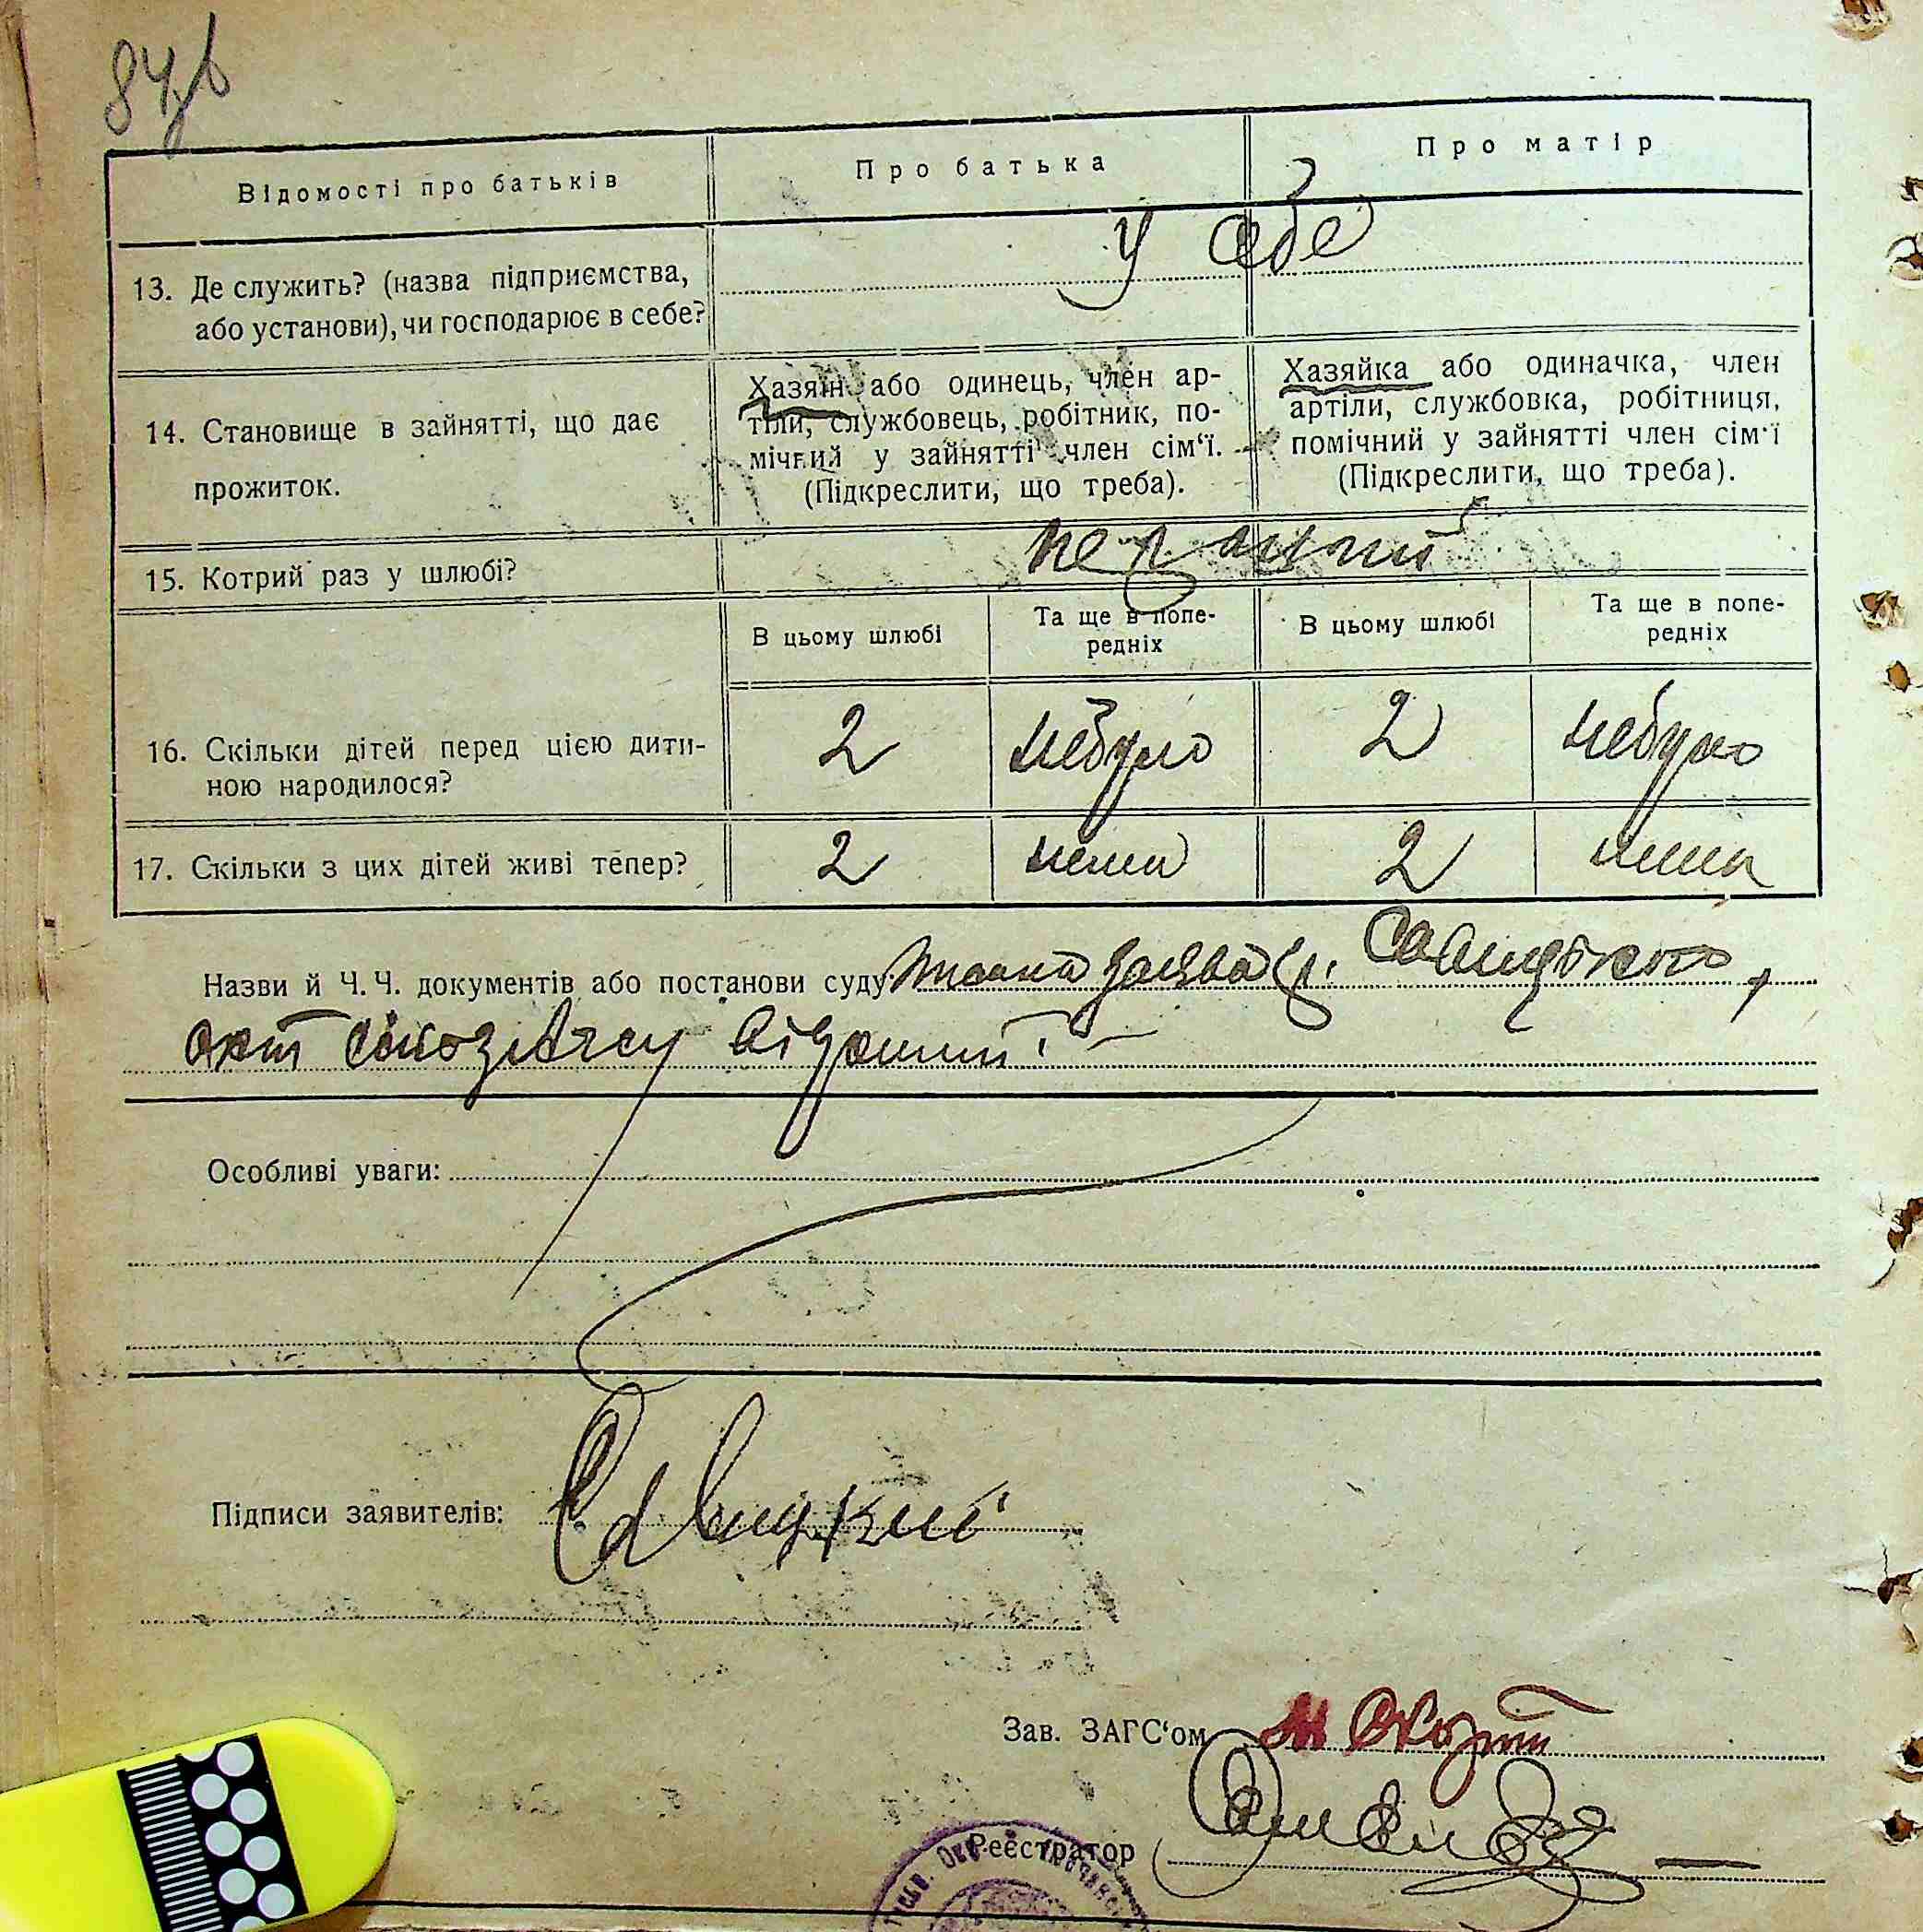 Відомості про батьків
Про батька
Про матір
13. Де служить? (назва підприємства,
або установи), чи господарює в себе?
у себе
14. Становище в зайнятті, що дає
прожиток.
Хазяїн або одинець, член ар-
тіли, службовець, робітник, по-
мічний у зайнятті член сім‘ї.
(Підкреслити, що треба).
Хазяйка або одиначка, член
артіли, службовка, робітниця,
помічний у зайнятті член сім‘ї
(Підкреслити, що треба).
15. Котрий раз у шлюбі?
перший
В цьому шлюбі
Та ще в попе-
редніх
В цьому шлюбі
Та ще в попе-
редніх
16. Скільки дітей перед цією дити-
ною народилося?
2 небуло 2 небуло
17. Скільки з цих дітей живі тепер?
2 нема 2 нема
Назви й Ч. Ч. документів або постанови суду: заява гр. Савицького,
акт
Особливі уваги:
Підписи заявителів: Савицкий
Зав. ЗАГС‘ом
Реєстратор